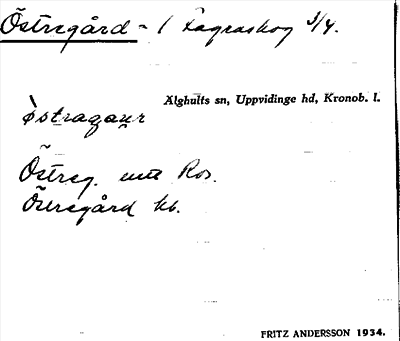 Östregård - 1 Fagraskog 3/4.
Älghults sn, Uppvidinge hd, Kronob. l.
östragaɳr
Östreg. enl Ros.
Östregård kb.
FRITZ ANDERSSON 1934.